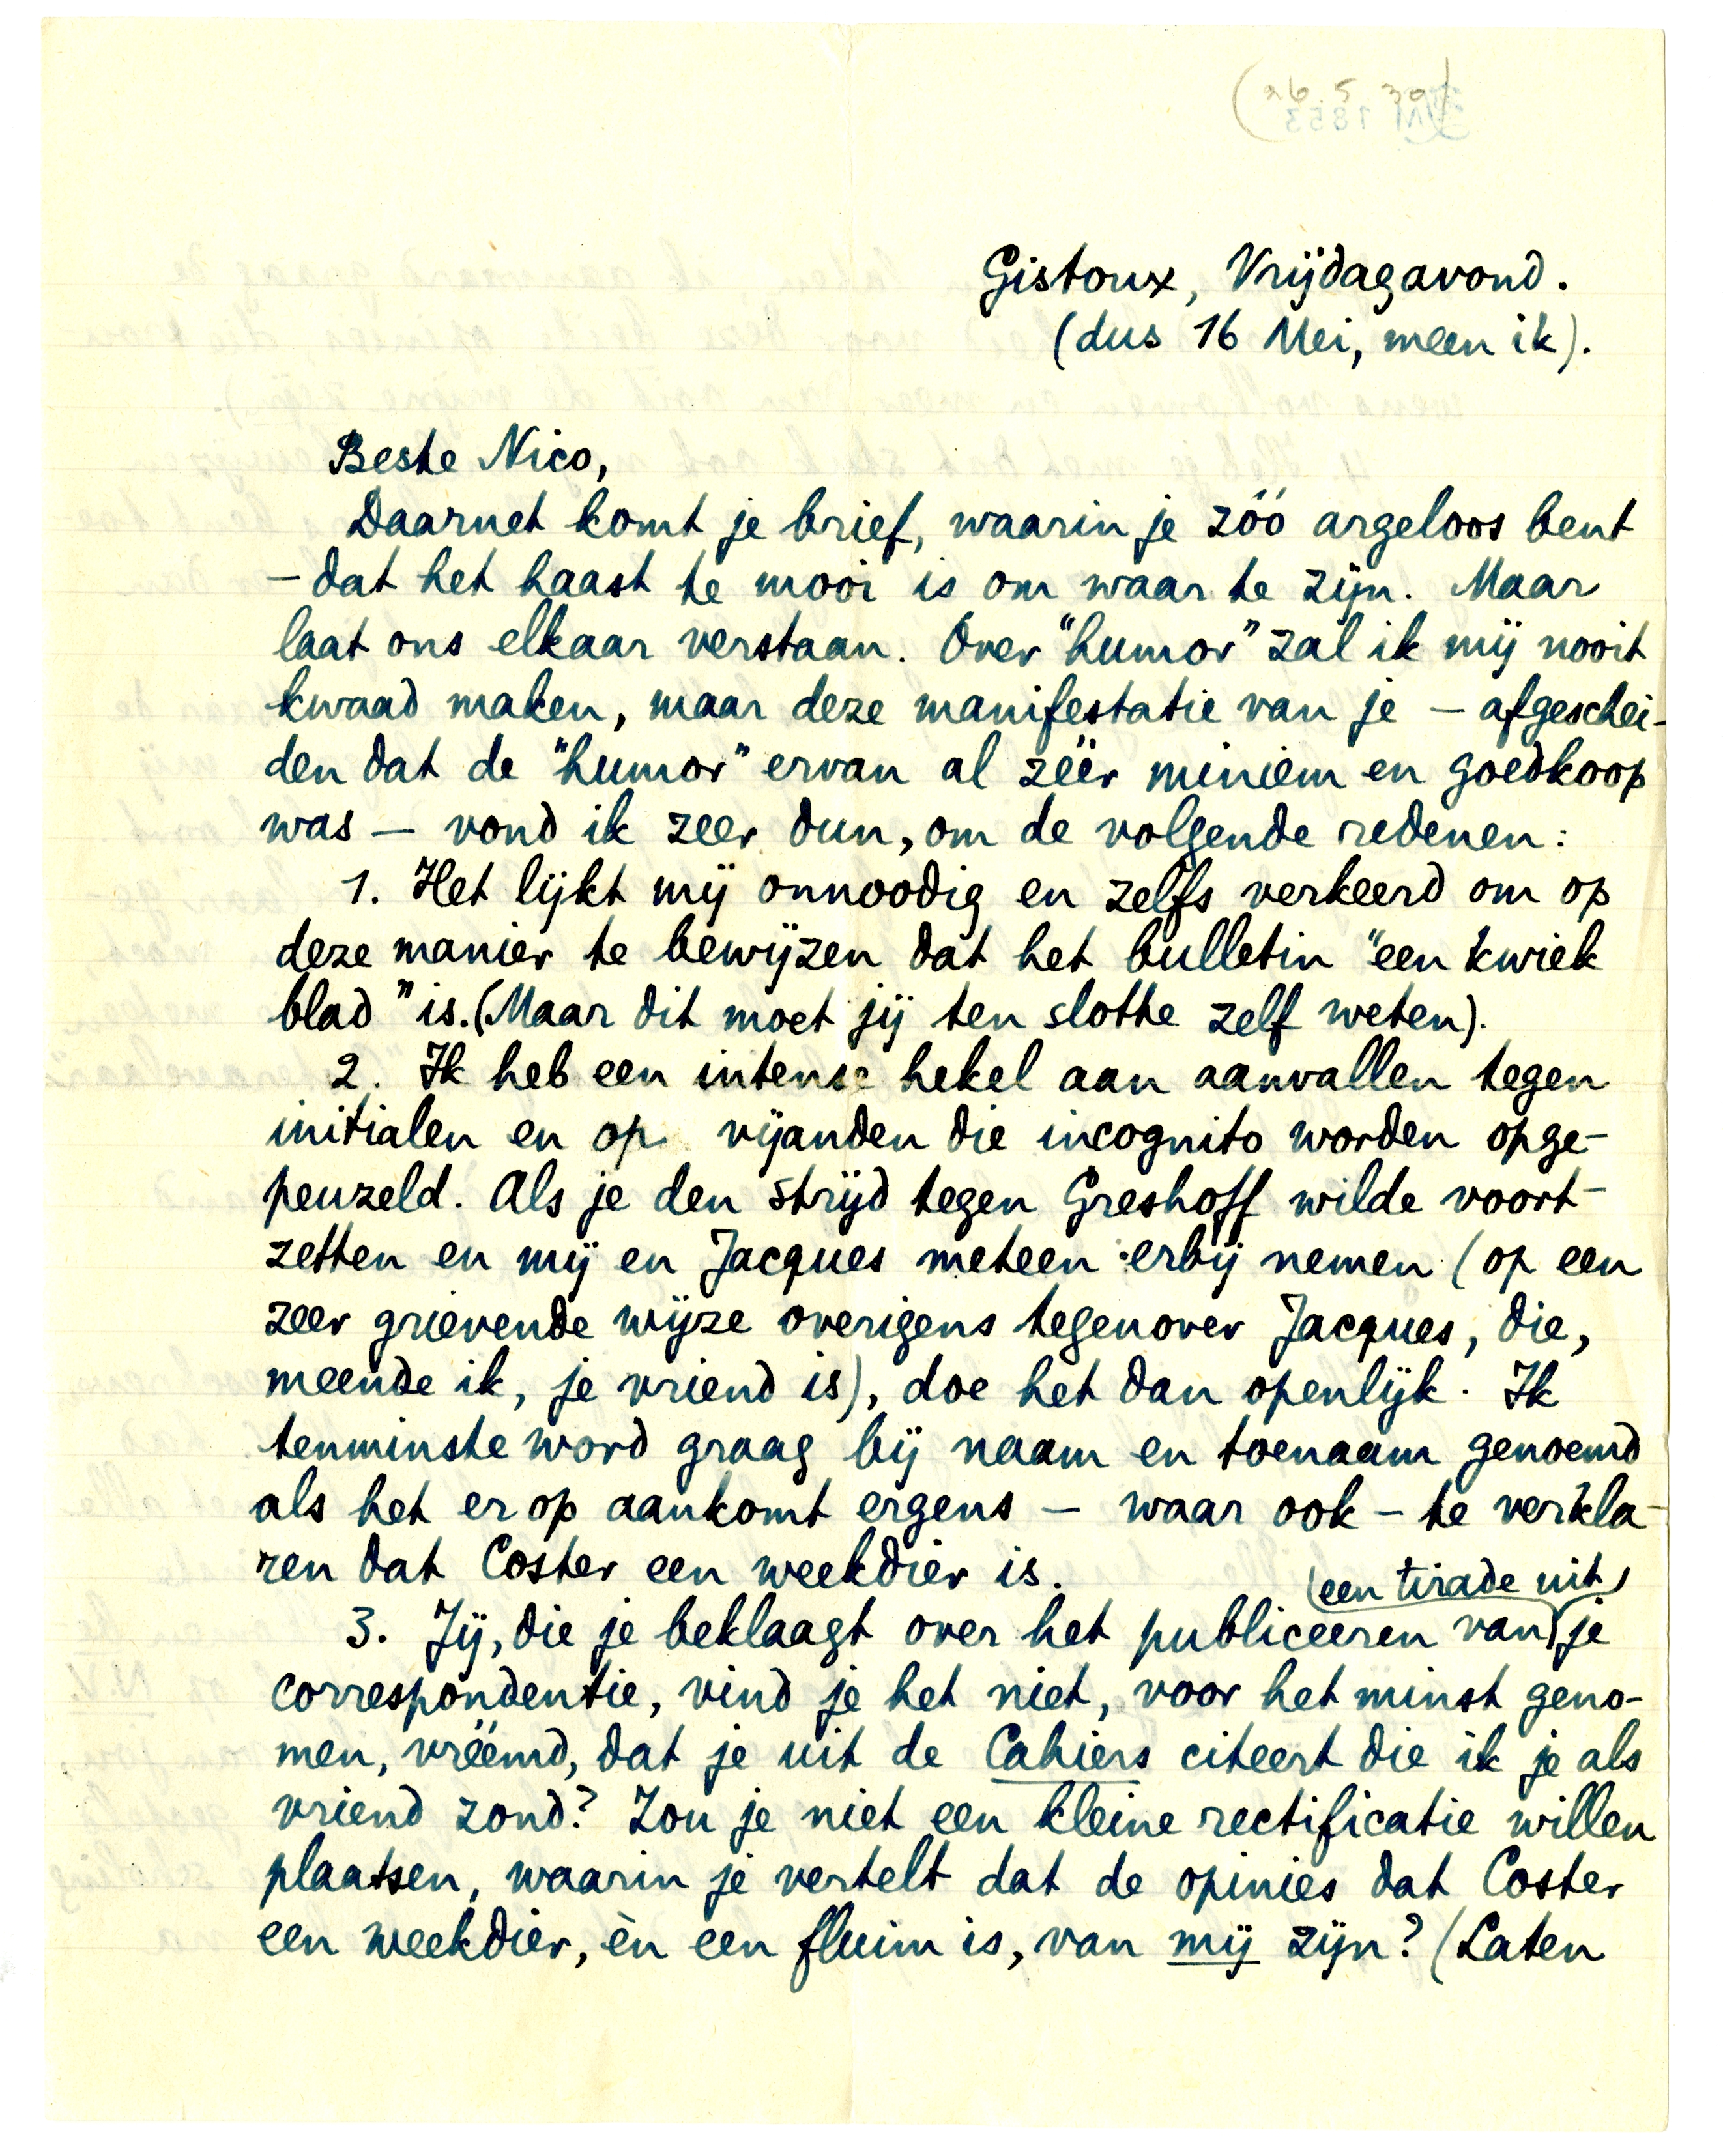 (26.5.30)
Gistoux, Vrijdagavond.
(dus 16 Mei, meen ik).
Beste Nico,
Daarnet komt je brief, waarin je zóó argeloos bent
– dat het haast te mooi is om waar te zijn. Maar
laat ons elkaar verstaan. Over "humor" zal ik mij nooit
kwaad maken, maar deze manifestatie van je – afgeschei-
den dat de "humor" ervan al zéér miniem en goedkoop
was – vond ik zeer dun, om de volgende redenen:
1. Het lijkt mij onnoodig en zelfs verkeerd om op
deze manier te bewijzen dat het bulletin "een kwiek
blad" is. (Maar dit moet jij ten slotte zelf weten).
2. Ik heb een intense hekel aan aanvallen tegen
initialen en op vijanden die incognito worden opge-
peuzeld. Als je den strijd tegen Greshoff wilde voort-
zetten en mij en Jacques meteen erbij nemen (op een
zeer grievende wijze overigens tegenover Jacques, die,
meende ik, je vriend is), doe het dan openlijk. Ik
tenminste word graag bij naam en toenaam genoemd
als het er op aankomt ergens – waar ook – te verkla-
ren dat Coster een weekdier is.
(een tirade uit)
3. Jij, die je beklaagt over het publiceeren van je
correspondentie, vind je het niet, voor het minst geno-
men, vréémd, dat je uit de Cahiers citeert die ik je als
vriend zond? Zou je niet een kleine rectificatie willen
plaatsen, waarin je vertelt dat de opinies dat Coster
een weekdier, èn een fluim is, van mij zijn? (Laten